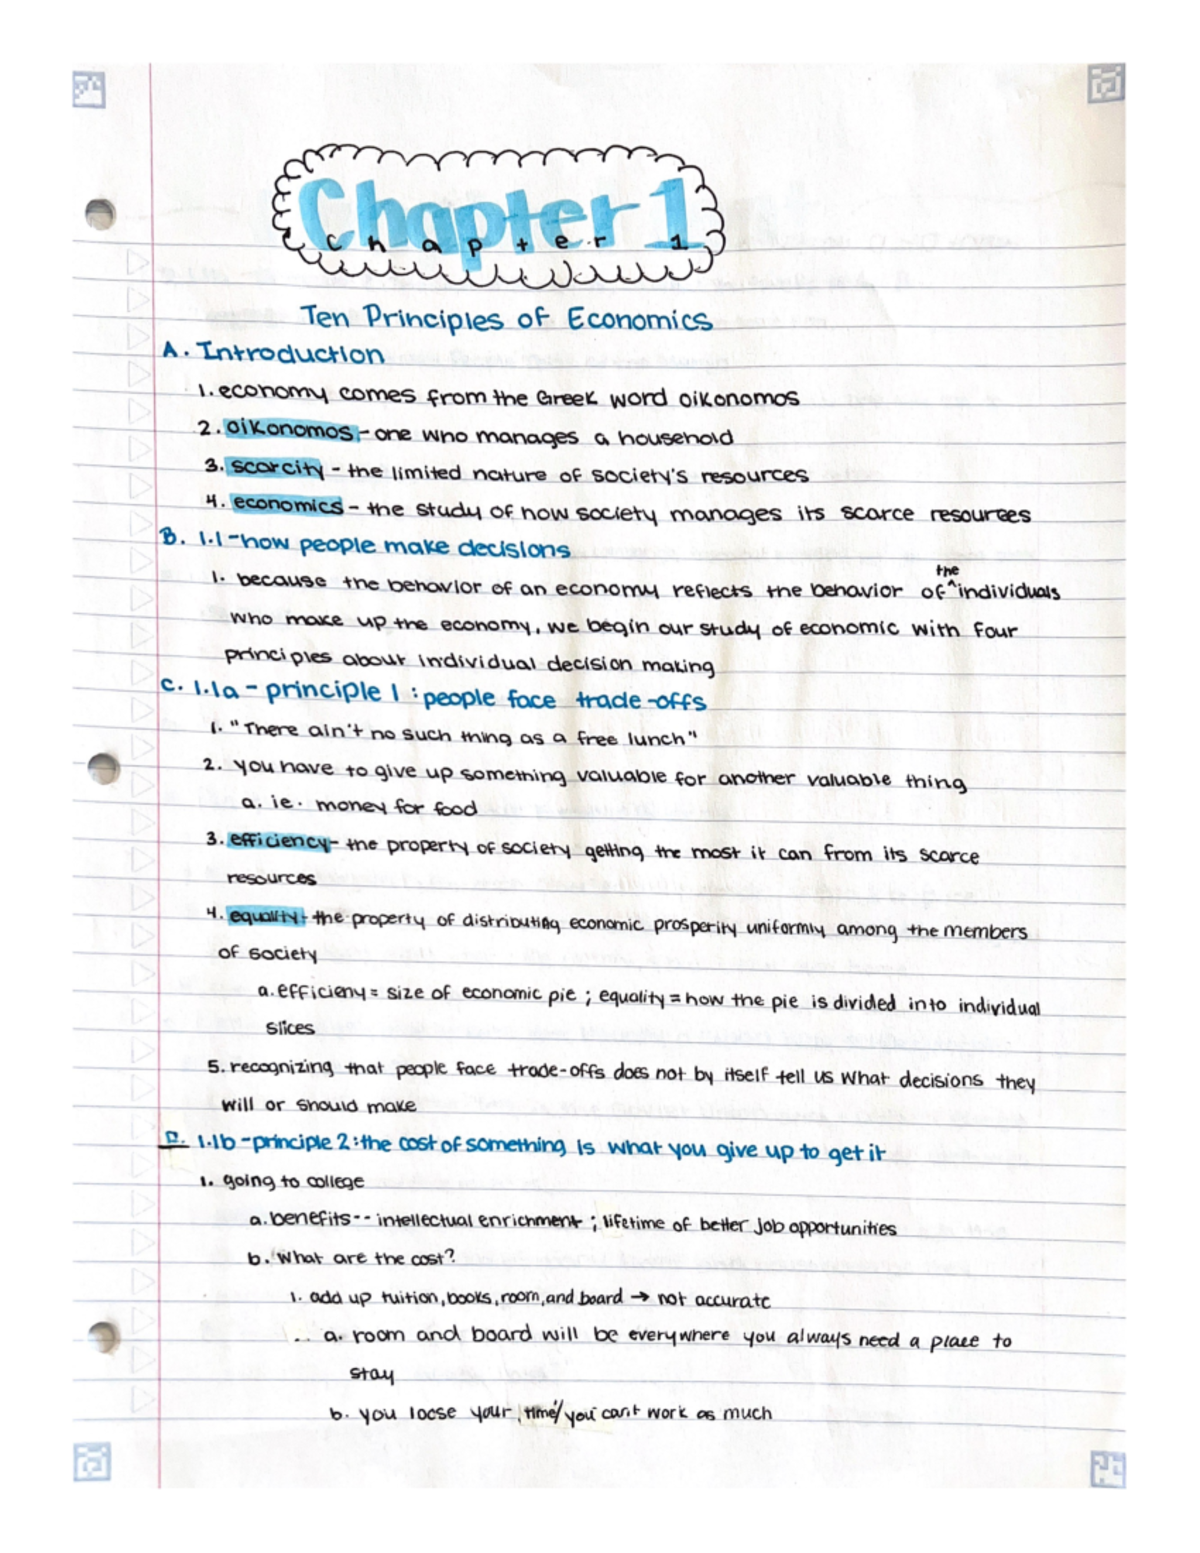 Chapter 1
chapter 1
Ten Principles of Economics
A. Introduction
1. economy comes from the Greek word oikonomos
2. oikonomos - one who manages a household
3. scarcity - the limited nature of society's resources
4. economics - the study of how society manages its scarce resources
B. 1.1 - how people make decisions
1. because the behavior of an economy reflects the behavior of ^the individuals
who make up the economy, we begin our study of economic with four
principles about individual decision making
C. 1.1a - principle 1 : people face trade-offs
1. "There ain't no such thing as a free lunch"
2. you have to give up something valuable for another valuable thing
a. ie. money for food
3. efficiency - the property of society getting the most it can from its scarce
resources
4. equality - the property of distributing economic prosperity uniformly among the members
of society
a. efficieny = size of economic pie ; equality = how the pie is divided into individual
slices
5. recognizing that people face trade-offs does not by itself tell us what decisions they
will or should make
D. 1.1b - principle 2 : the cost of something is what you give up to get it
1. going to college
a. benefits -- intellectual enrichment ; lifetime of better job opportunities
b. What are the cost?
1. add up tuition, books, room, and board → not accurate
a. room and board will be everywhere you always need a place to
stay
b. you loose your time/you can't work as much